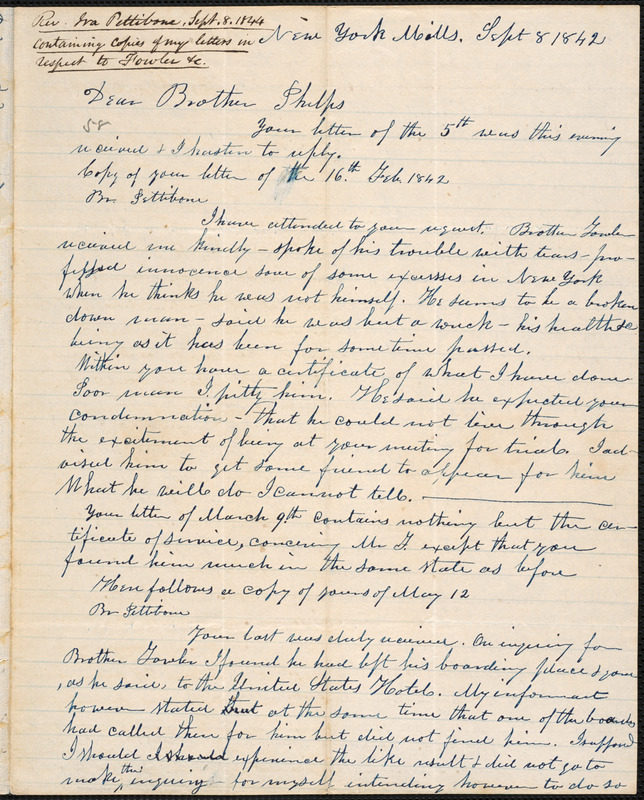 Rev. Ira Pettibone, Sept. 8. 1844
containing copies of my letters in
respect to Fowler &c.
New York Mills. Sept 8 1842
Dear Brother Phelps
58
Your letter of the 5th was this evening
received & I hasten to reply.
Copy of your letter of the 16th. Feb. 1842
Br. Pettibone
I have attended to your request. Brother Fowler
received me kindly – spoke of his trouble with tears – pro-
fessed innocence save of some excesses in New York
when he thinks he was not himself. He seems to be a broken
down man – said he was but a wreck – his health &c
being as it has been for sometime passed.
Within you have a certificate of what I have done
Poor man I pitty him. He said he expected your
condemnation – that he could not live through
the excitement of being at your meeting for trial. I ad-
vised him to get some friend to appear for him
What he will do I cannot tell.
Your letter of March 9.th contains nothing but the cer-
tificate of service, concering Mr F. except that you
found him much in the same state as before
Here follows a copy of yours of May 12
Br Pettibone
Your last was duly received. On inquiring for
Brother Fowler I found he had left his boarding place & gone
, as he said, to the United States Hotel. My informant
however stated that at the same time that one of the boarders
had called there for him but did not find him. I supposed
I should I should experience the like result & did not go to
make the inquiry for myself intending however to do so